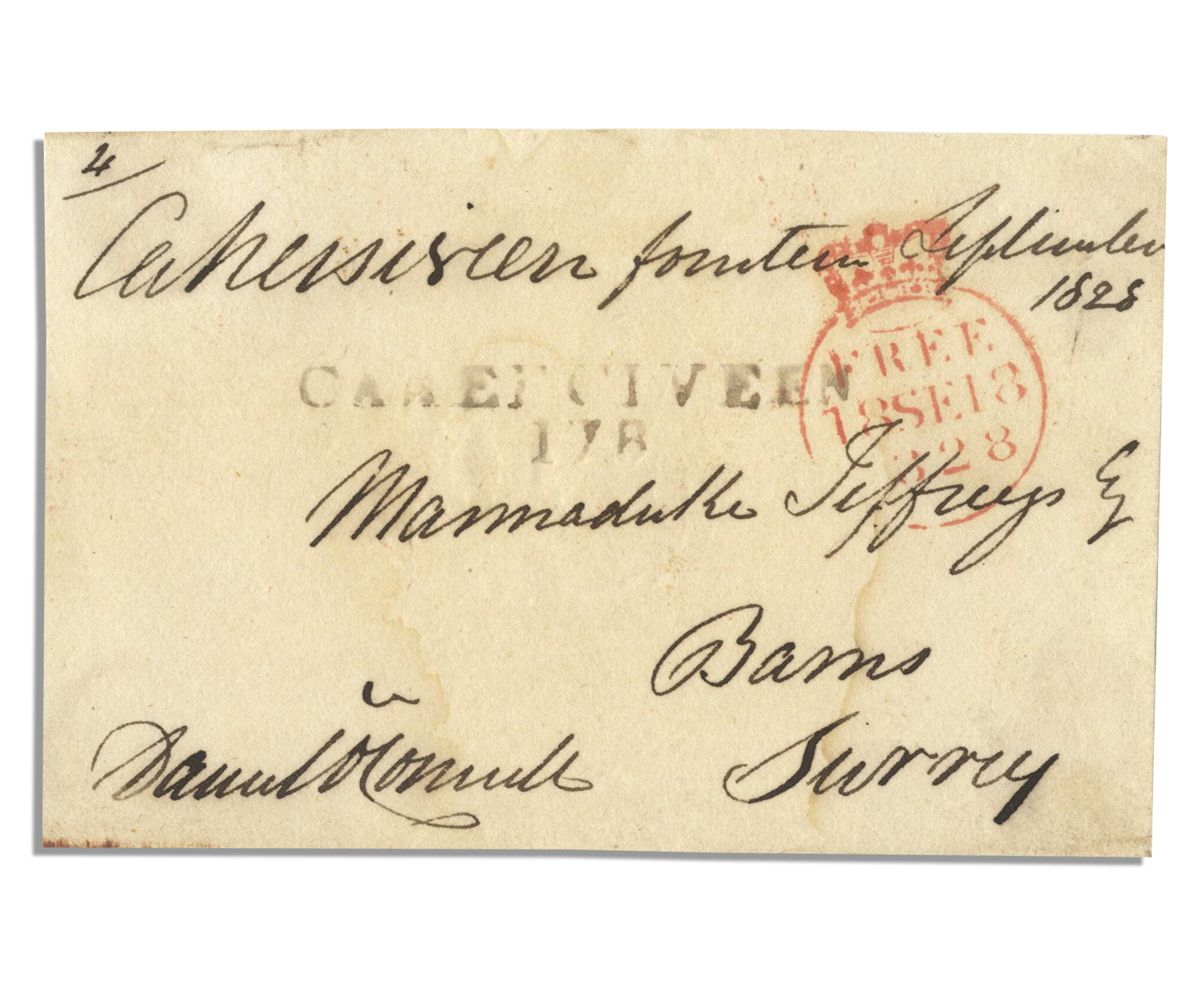 4
Cahersiveen fourteen September
1828
FREE
18SE18
828
CAHERCIVEEN
178
Marmaduke Jeffreys Esq
Barns
Surrey
Daniel O'Connell